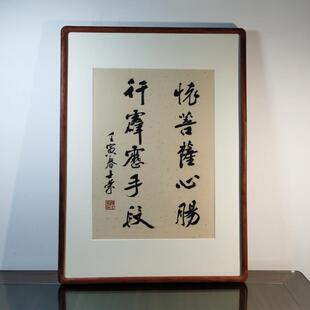 懷菩薩心腸
行霹靂手段
壬寅春